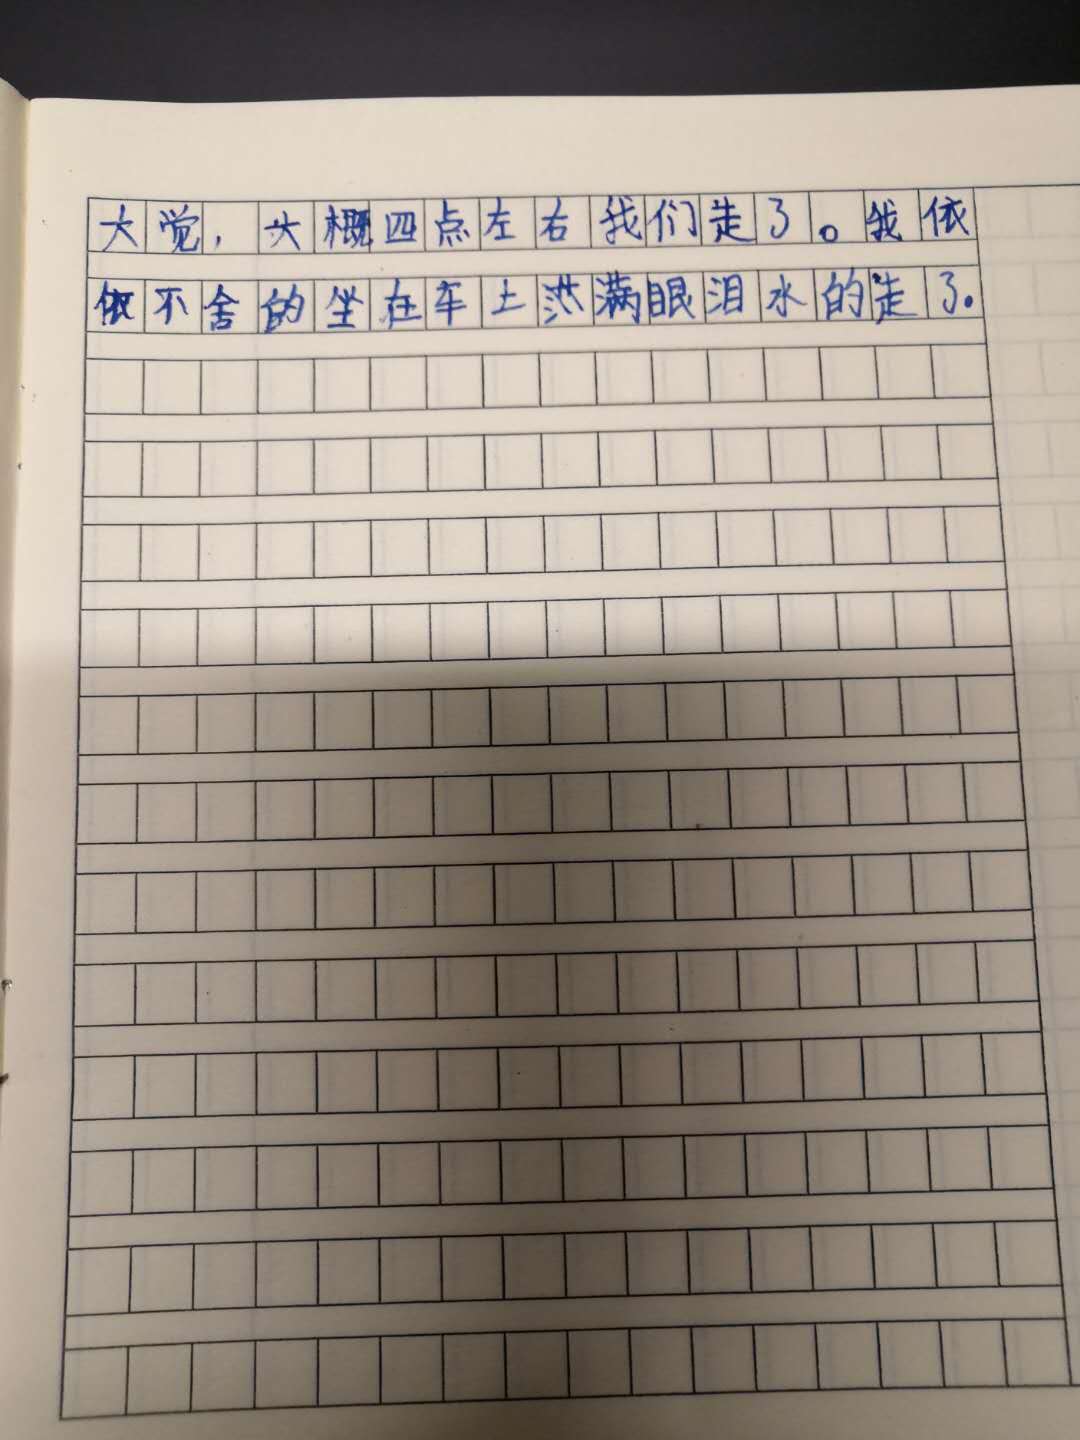 大觉，大概四点左右我们走了。我依
依不舍的坐在车上满眼泪水的走了。